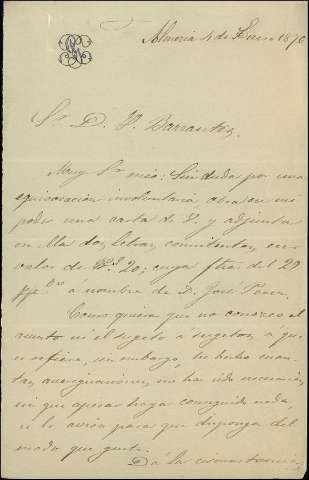 Almeria 4 de Enero 1870
Sr. D. V. Barrantes.
Muy Sr mio: Sin duda por una
equivocacion involuntaria obra en mi
poder una carta de V. y adjunta
en ella dos letras, comitentes, cuyo
valor de 20; cuya del 29
a nombre de D. José Perez.
Como quiera que no conozco el
asunto ni el sugeto ó sugetos, á que
se refiere, sin embargo, he hecho cuan-
tas averiguaciones me han sido necesarias
sin que apesar haya conseguido nada,
y lo aviso para que disponga del
modo que guste.
Dá las circunstancias